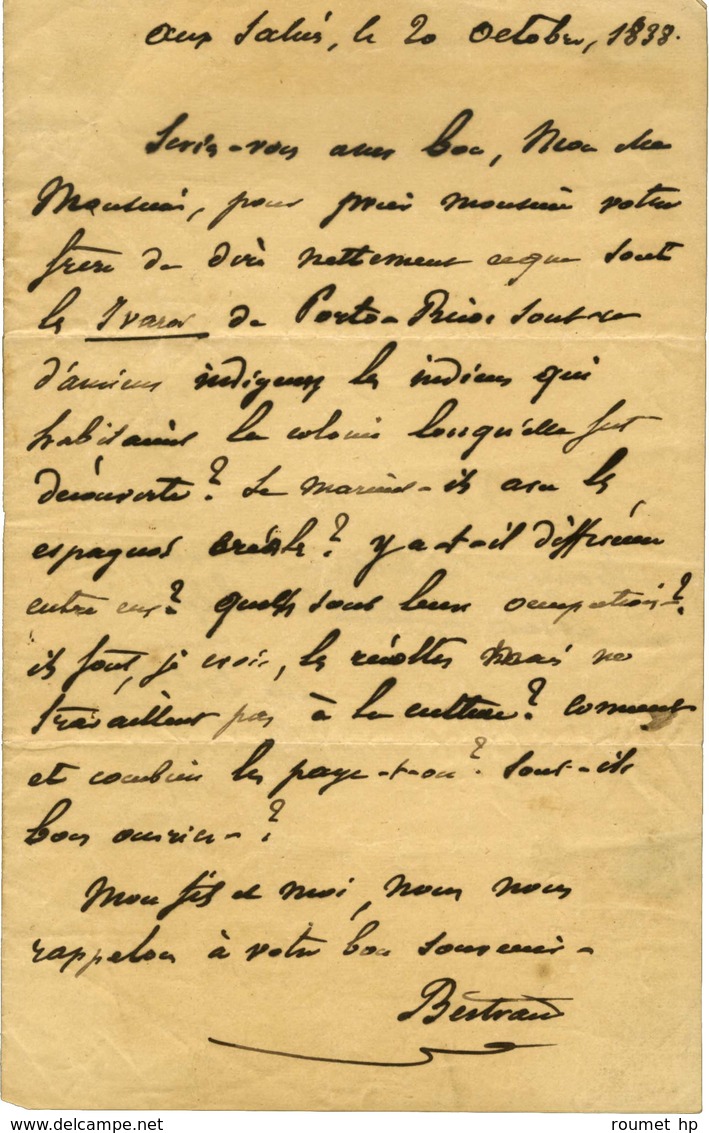 aux Salés, le 20 octobre, 1838.
Seriez-vous assez bon, Mon cher
Monsieur, pour prier monsieur votre
frère de dire nettement ceque sont
les Ivaros de Porto-Rico: Sont-ce
d'anciens indigenes les indiens qui
habitaient la colonie lorsqu'elle fut
découverte? Se marient-ils avec les
espagnols créoles? y a-t-il différence
entre eux? quelles sont leurs occupations?
ils font, je crois, les récoltes mais ne
travaillent pas à la culture? comment
et combien les paye-t-on? Sont-ils
bons ouvriers-?
Mon fils et moi, nous nous
rappelons à votre bon souvenir-
Bertrand
roumet hp
www.delcampe.net